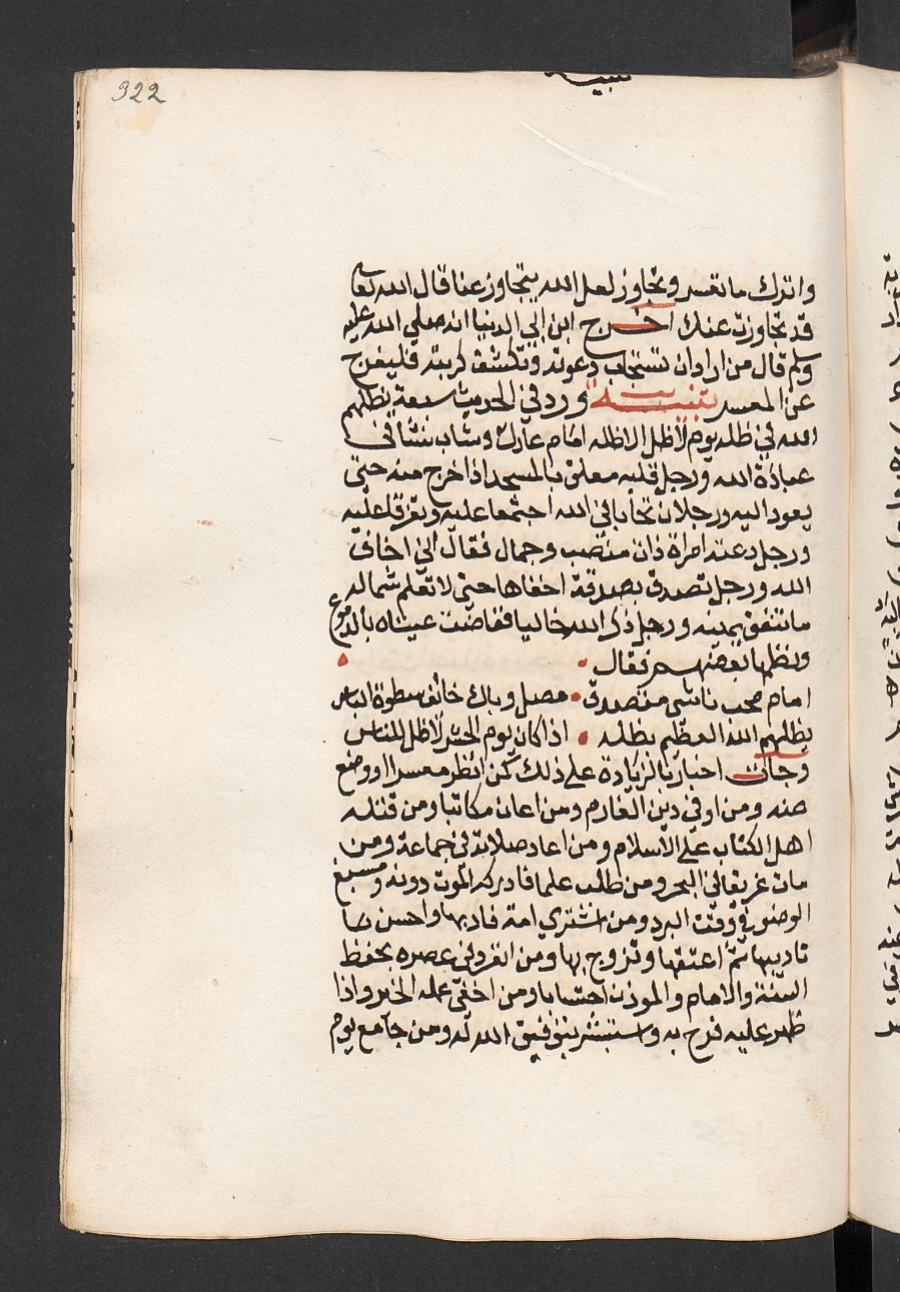 322
واترك ما تعسر وتجاوز لعل الله يتجاوز عنا قال الله تعالى
قد تجاوزت عنك اخرج ابن ابي الدنيا انه صلي الله عليه
وسلم قال من اراد ان تستجاب دعوته وتكشف كربته فليفرج
عن المعسر تنبيه ورد في الحديث سبعة يظلهم
الله في ظله يوم لا ظل الا ظله امام عادل وشاب نشأ في
عبادة الله ورجل قلبه معلق بالمسجد اذا خرج منه حتى
يعود اليه ورجلان تحابا في الله اجتمعا عليه وتفرقا عليه
ورجل دعته امراة ذات منصب وجمال فقال اني اخاف
الله ورجل تصدق بصدقة اخفاها حتى لا تعلم شماله
ما تنفق يمينه ورجل ذكر الله خاليا ففاضت عيناه بالدموع
ونظمها بعضهم فقال
امام محب ناشي متصدق مصل وباك خائف سطوة الباس
يظلهم الله العظيم بظله اذا كان يوم الحشر لا ظل للناس
وجات اخبار بالزيادة على ذلك كمن انظر معسرا او وضع
عنه ومن اوفي دين الغارم ومن اعان مكاتبا ومن قتله
اهل الكتاب على الاسلام ومن اعاد صلاته في جماعة ومن
مات غريقا في البحر ومن طلب علما فادركه الموت دونه ومسبغ
الوضوء في وقت البرد ومن اشترى امة فادبها واحسن
تاديبها ثم اعتقها وتزوج بها ومن انفرد في عصره بحفظ
السنة والامام والموذن احتسابا ومن اخفى عمله الخير واذا
ظهر عليه فرح به واستبشر بتوفيق الله له ومن جامع يوم